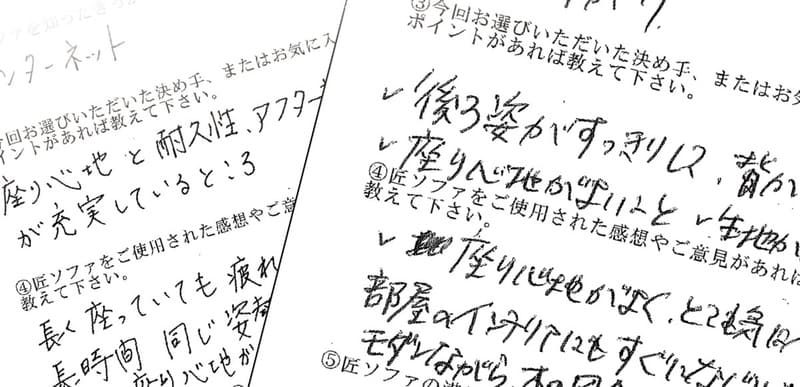 ファを知ったきっか
ンターネット
今回お選びいただいた決め手、またはお気に入
イントがあれば教えて下さい。
座り心地と耐久性、アフター
が充実しているところ
④匠ソファをご使用された感想やご意
教えて下さい。
長く座っていても疲れ
長時間同じ姿
座り心地が
③今回お選びいただいた決め手、またはお気
ポイントがあれば教えて下さい。
✓後ろ姿がすっきりして、背が
✓座り心地がよいこと ✓生地が
④匠ソファをご使用された感想やご意見があれば
教えて下さい。
✓座り心地がよく、とても気に
部屋のインテリアにも
モダンながら、
⑤匠ソファの